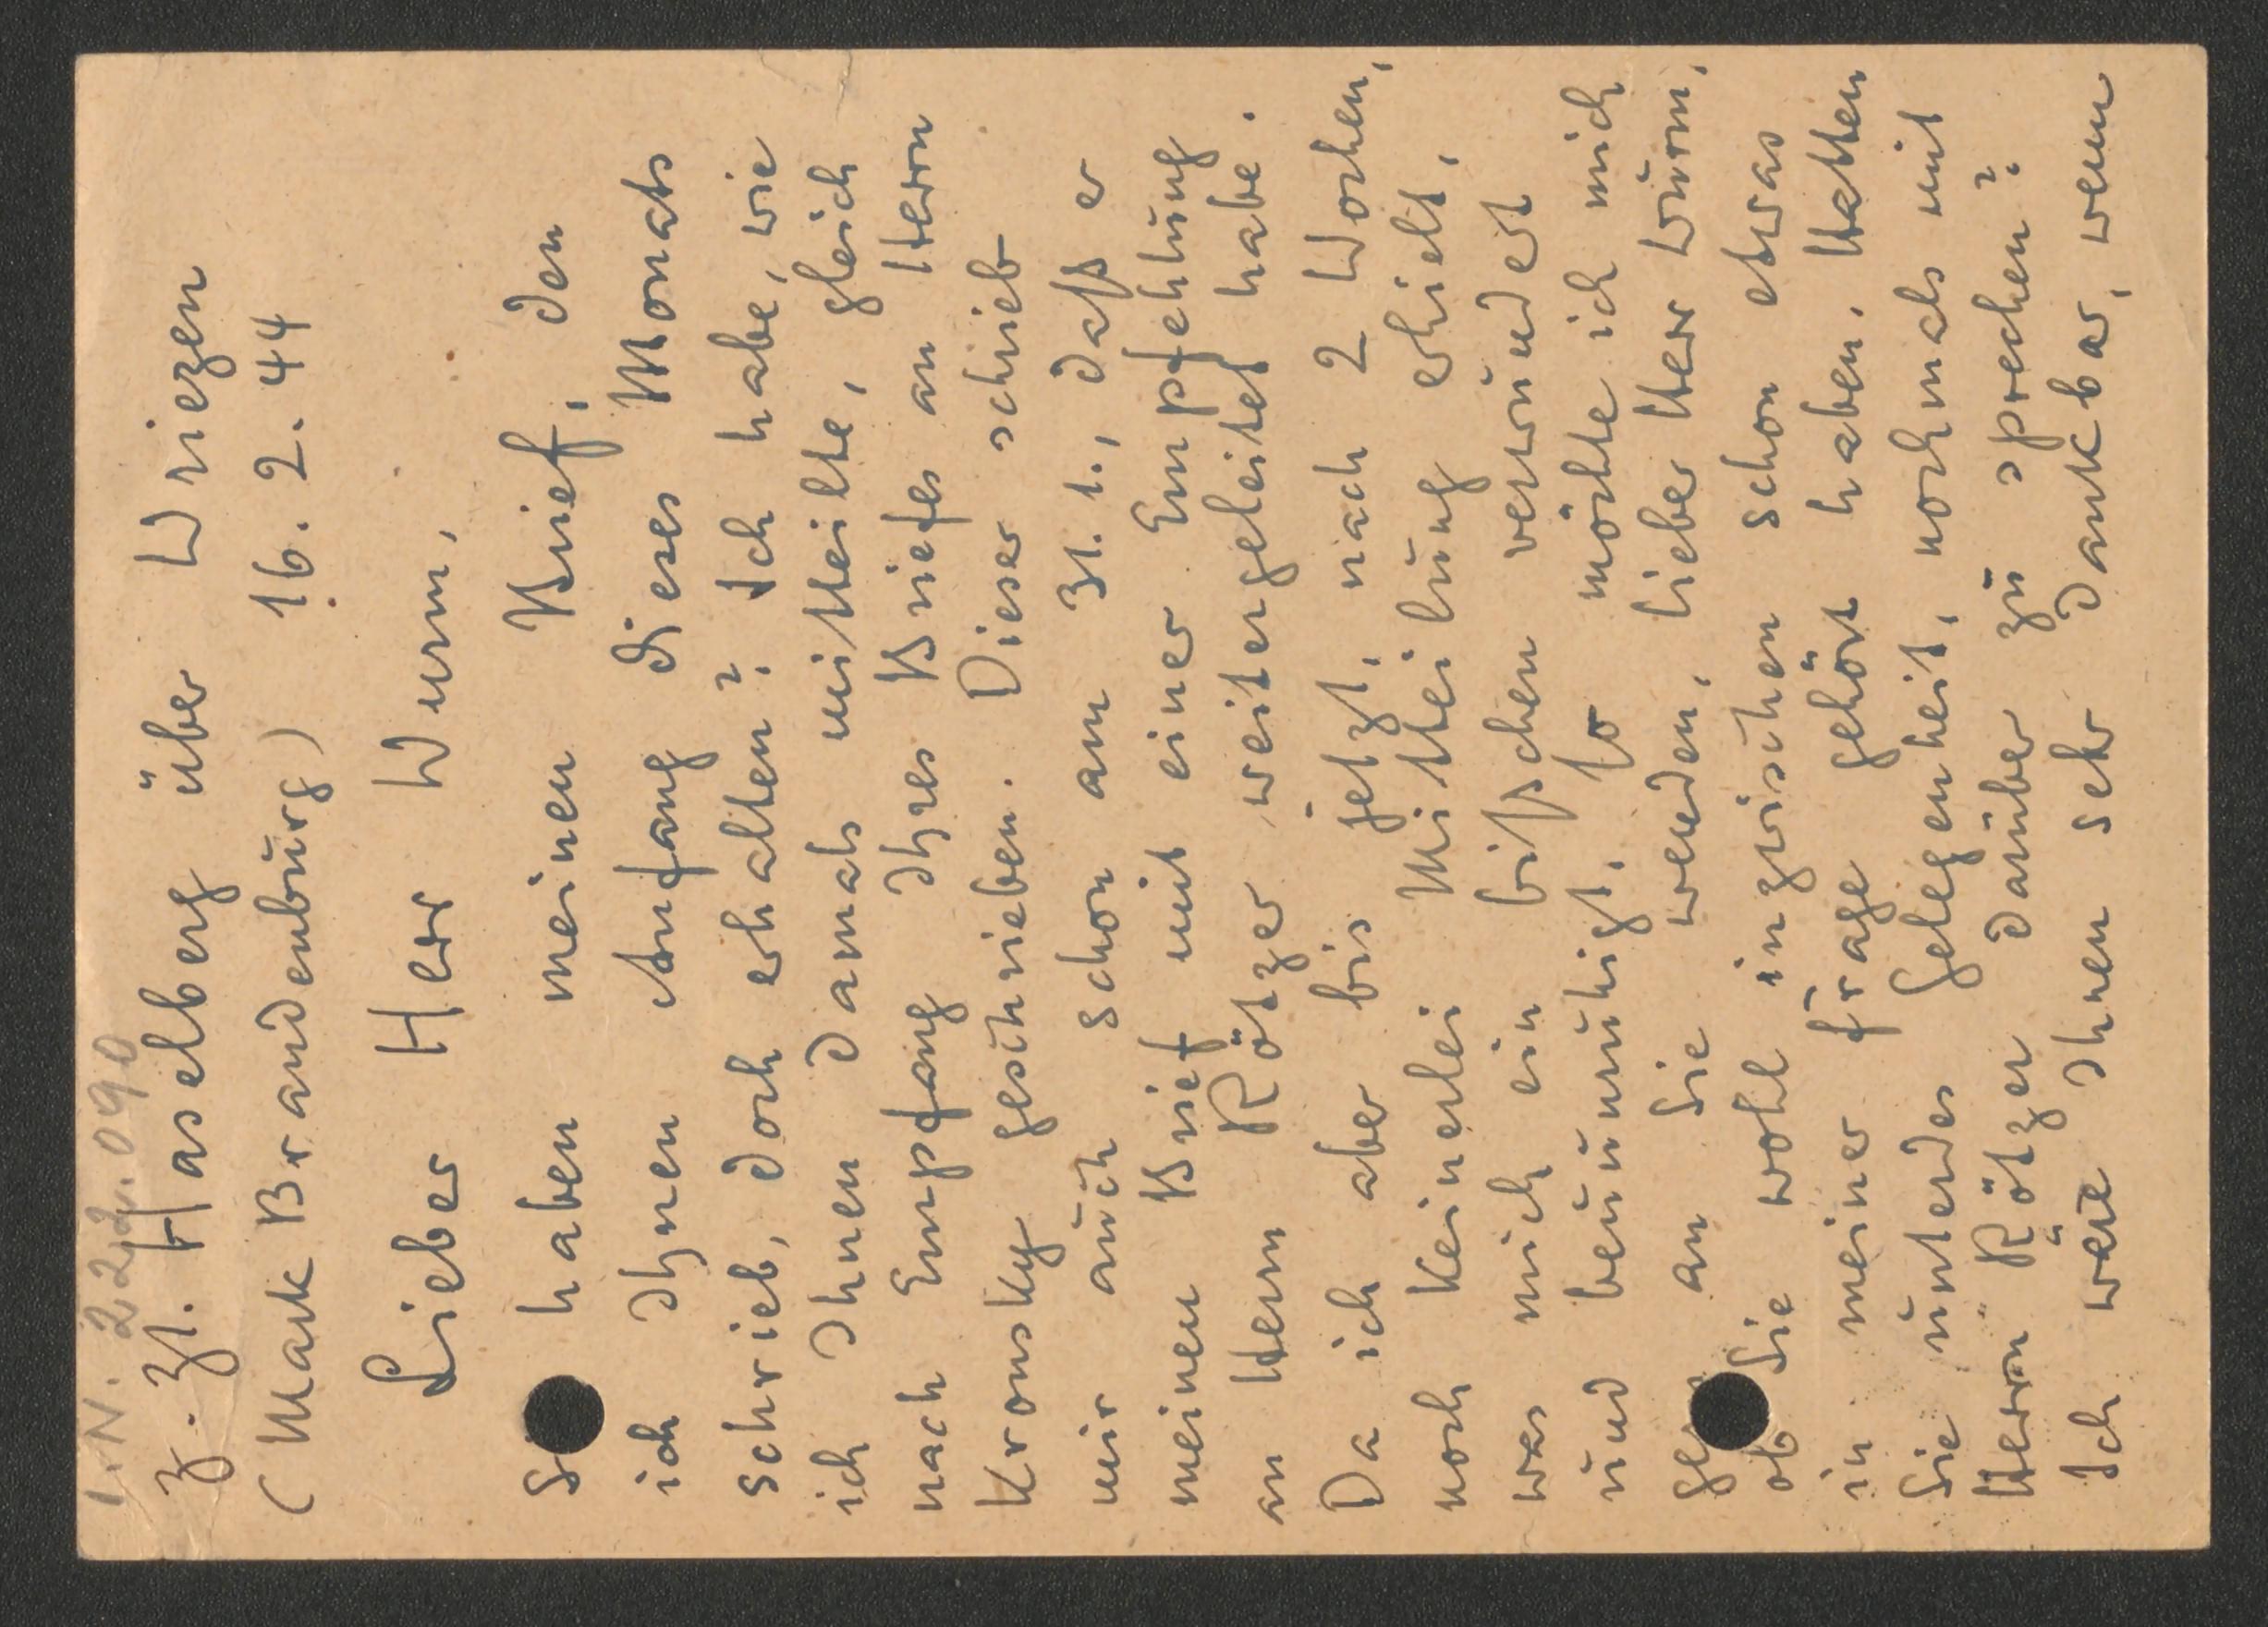 I.N. 222.090
z. Zt. Haselberg über Wriezen
(Mark Brandenburg) 16. 2. 44
Lieber Herr Wurm,
S haben meinen Brief, den
ich Ihnen Anfang dieses Monats
schrieb, doch erhalten? Ich habe, wie
ich Ihnen damals mitteilte, gleich
nach Empfang Ihres Briefes an Herrn
Kronsky geschrieben. Dieser schrieb
mir auch schon am 31. 1., daß er
meinen Brief mit einer Empfehlung
an Herrn Rötzer weitergeleitet habe.
Da ich aber bis jetzt, nach 2 Wochen,
noch keinerlei Mitteilung erhielt,
was mich ein bißchen verwundert
und beunruhigt, so möchte ich mich
gern an Sie wenden, lieber Herr Wurm,
ob Sie wohl inzwischen schon etwas
in meiner Frage gehört haben. Hatten
Sie unterdes Gelegenheit, nochmals mit
Herrn Rötzer darüber zu sprechen?
Ich wäre Ihnen sehr dankbar, wenn